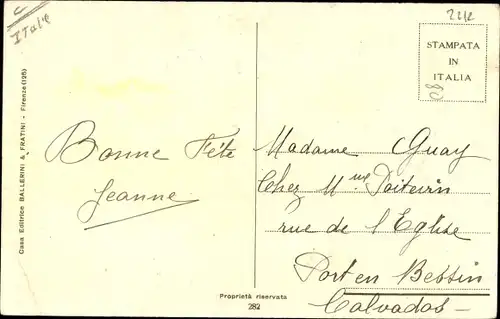 Italie
2212
STAMPATA
IN
ITALIA
Casa Editrice BALLERINI & FRATINI - Firenze (195)
Bonne Fête
Jeanne
Madame Guay
Chez Mme Poitevin
rue de l'Eglise
Port en Bessin
Calvados
Proprietà riservata
282